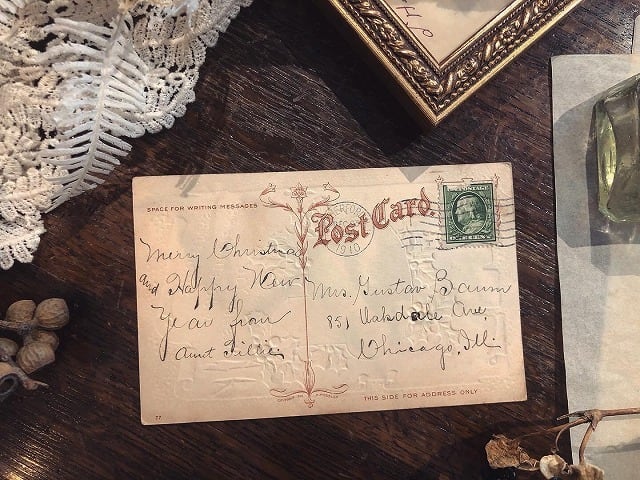 SPACE FOR WRITING MESSAGES
Post Card.
1910
U.S. POSTAGE
Merry Christmas
and Happy New
Year from
Aunt Tillie
Mrs. Gustav Baum
851 Oakdale Ave,
Chicago, Ill.
THIS SIDE FOR ADDRESS ONLY
77